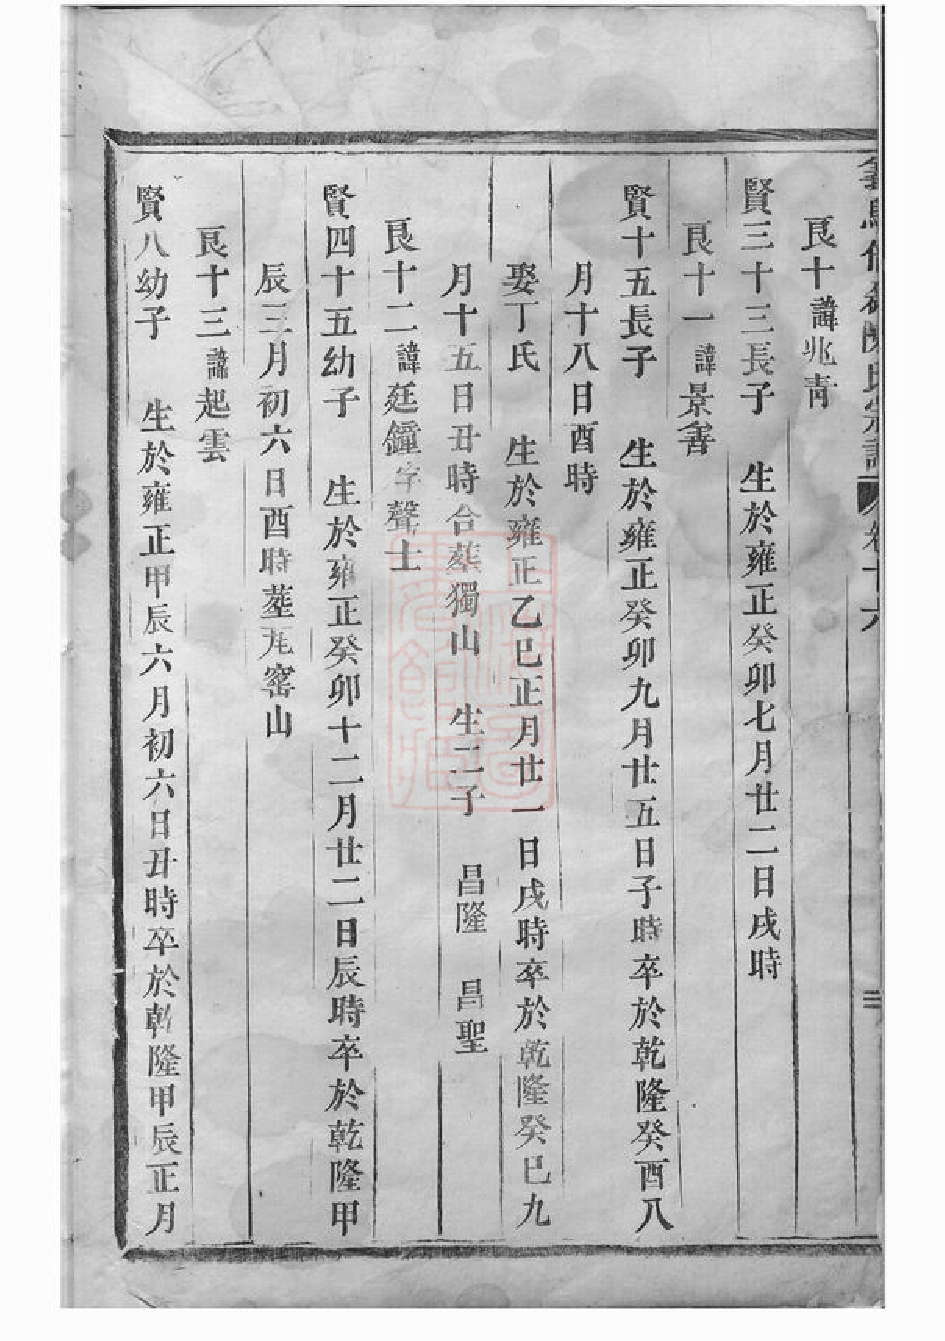 良十諱兆青
賢三十三長子 生於雍正癸卯七月廿二日戌時
良十一諱景善
賢十五長子 生於雍正癸卯九月廿五日子時卒於乾隆癸酉八
月十八日酉時
娶丁氏 生於雍正乙巳正月廿一日戌時卒於乾隆癸巳九
月十五日丑時合葬獨山 生二子 昌隆 昌聖
良十二諱廷鐘字聲士
賢四十五幼子 生於雍正癸卯十二月廿二日辰時卒於乾隆甲
辰三月初六日酉時葬瓦窰山
良十三諱起雲
賢八幼子 生於雍正甲辰六月初六日丑時卒於乾隆甲辰正月